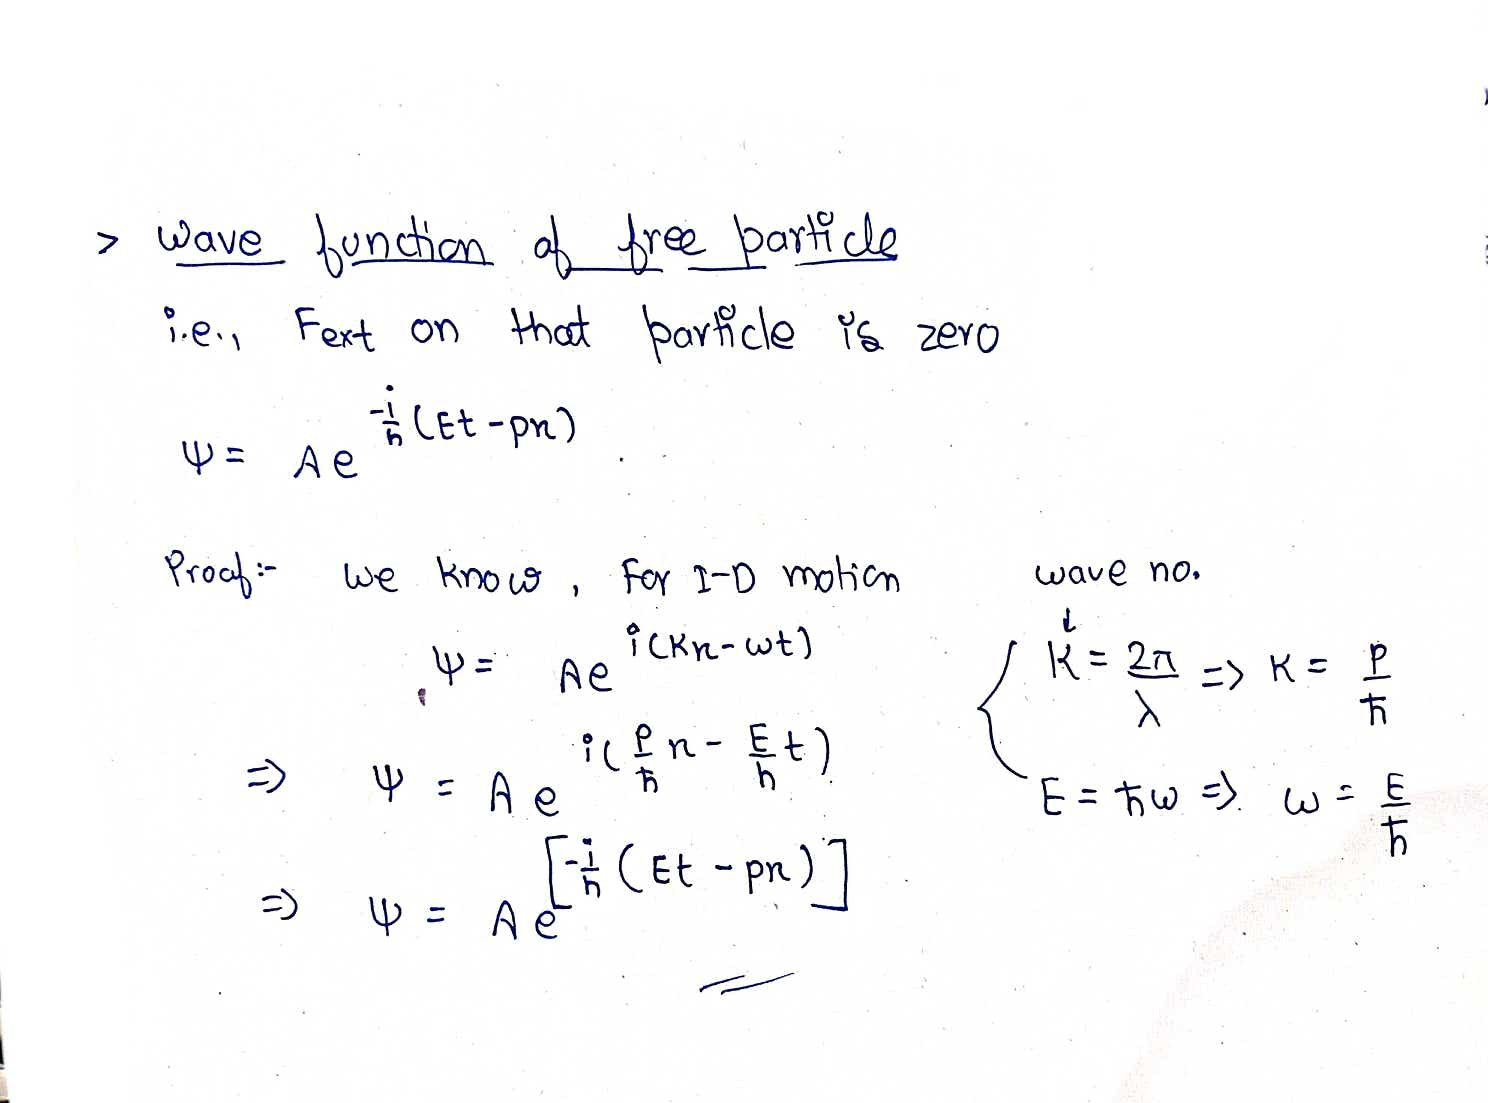 > Wave function of free particle
i.e., Fext on that particle is zero
ψ = A e^{-i/ħ (Et - px)}
Proof:- We know, For 1-D motion
ψ = Ae^{i(Kx - ωt)}
⇒ ψ = A e^{i(P/ħ x - E/ħ t)}
⇒ ψ = A e^{[-i/ħ (Et - px)]}
wave no.
↓
K = 2π/λ ⇒ K = P/ħ
E = ħω ⇒ ω = E/ħ